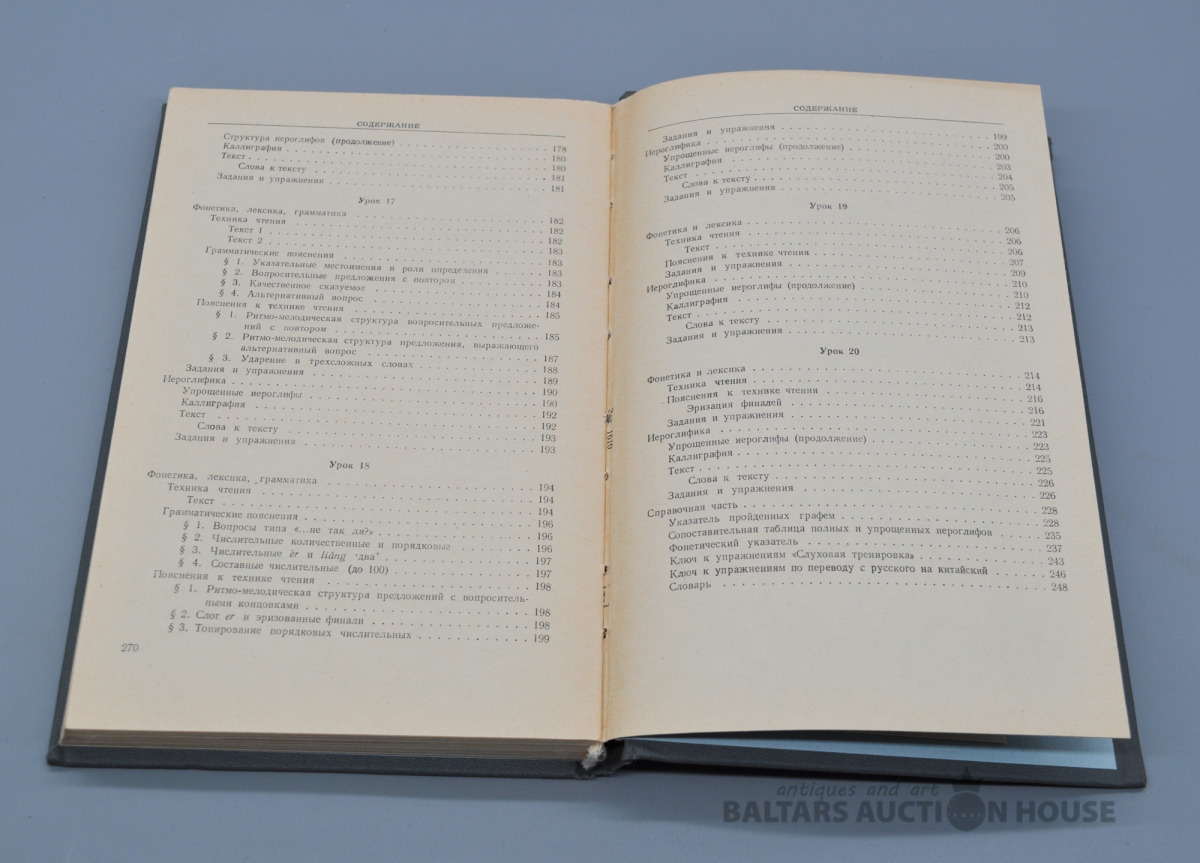 СОДЕРЖАНИЕ
Структура иероглифов (продолжение) . . . 178
Каллиграфия . . . 180
Текст . . . 180
Слова к тексту . . . 181
Задания и упражнения . . . 181
Урок 17
Фонетика, лексика, грамматика . . . 182
Техника чтения . . . 182
Текст 1 . . . 182
Текст 2 . . . 183
Грамматические пояснения . . . 183
§ 1. Указательные местоимения в роли определения . . . 183
§ 2. Вопросительные предложения с повтором . . . 183
§ 3. Качественное сказуемое . . . 184
§ 4. Альтернативный вопрос . . . 184
Пояснения к технике чтения . . . 185
§ 1. Ритмо-мелодическая структура вопросительных предложе-
ний с повтором . . . 185
§ 2. Ритмо-мелодическая структура предложения, выражающего
альтернативный вопрос . . . 187
§ 3. Ударение в трехсложных словах . . . 188
Задания и упражнения . . . 189
Иероглифика . . . 190
Упрощенные иероглифы . . . 190
Каллиграфия . . . 192
Текст . . . 192
Слова к тексту . . . 193
Задания и упражнения . . . 193
Урок 18
Фонетика, лексика, грамматика . . . 194
Техника чтения . . . 194
Текст . . . 194
Грамматические пояснения . . . 196
§ 1. Вопросы типа «...не так ли?» . . . 196
§ 2. Числительные количественные и порядковые . . . 196
§ 3. Числительные èr и liǎng ‘два’ . . . 197
§ 4. Составные числительные (до 100) . . . 197
Пояснения к технике чтения . . . 198
§ 1. Ритмо-мелодическая структура предложений с вопроситель-
ными концовками . . . 198
§ 2. Слог er и эризованные финали . . . 198
§ 3. Тонирование порядковых числительных . . . 199
270
СОДЕРЖАНИЕ
Задания и упражнения . . . 199
Иероглифика . . . 200
Упрощенные иероглифы (продолжение) . . . 200
Каллиграфия . . . 203
Текст . . . 204
Слова к тексту . . . 205
Задания и упражнения . . . 205
Урок 19
Фонетика и лексика . . . 206
Техника чтения . . . 206
Текст . . . 206
Пояснения к технике чтения . . . 207
Задания и упражнения . . . 209
Иероглифика . . . 210
Упрощенные иероглифы (продолжение) . . . 210
Каллиграфия . . . 212
Текст . . . 212
Слова к тексту . . . 213
Задания и упражнения . . . 213
Урок 20
Фонетика и лексика . . . 214
Техника чтения . . . 214
Пояснения к технике чтения . . . 216
Эризация финалей . . . 216
Задания и упражнения . . . 221
Иероглифика . . . 223
Упрощенные иероглифы (продолжение) . . . 223
Каллиграфия . . . 225
Текст . . . 225
Слова к тексту . . . 226
Задания и упражнения . . . 226
Справочная часть . . . 228
Указатель пройденных графем . . . 228
Сопоставительная таблица полных и упрощенных иероглифов . . . 235
Фонетический указатель . . . 237
Ключ к упражнениям «Слуховая тренировка» . . . 243
Ключ к упражнениям по переводу с русского на китайский . . . 246
Словарь . . . 248
antiques and art
BALTARS AUCTION HOUSE